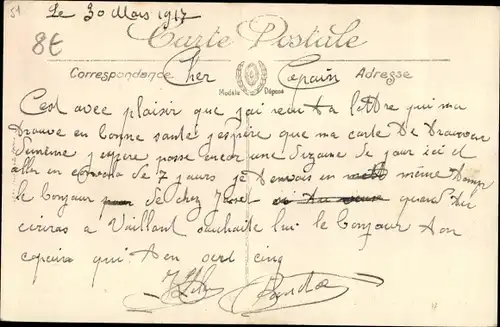 51
Le 30 Mars 1917
8€
Carte Postale
Correspondance
Cher Copain
Adresse
Modèle Déposé
C'est avec plaisir que j'ai recu ta lettre qui ma
trouve en bonne santé j'espère que ma carte te trouvera
de même j espere passe encor une dizaine de jour ici et
aller en de 7 jours je t'envais en même temps
le bonjour de chez quand tu
ecriras a Vaillant souhaite lui le bonjour ton
copain qui t'en sert cinq